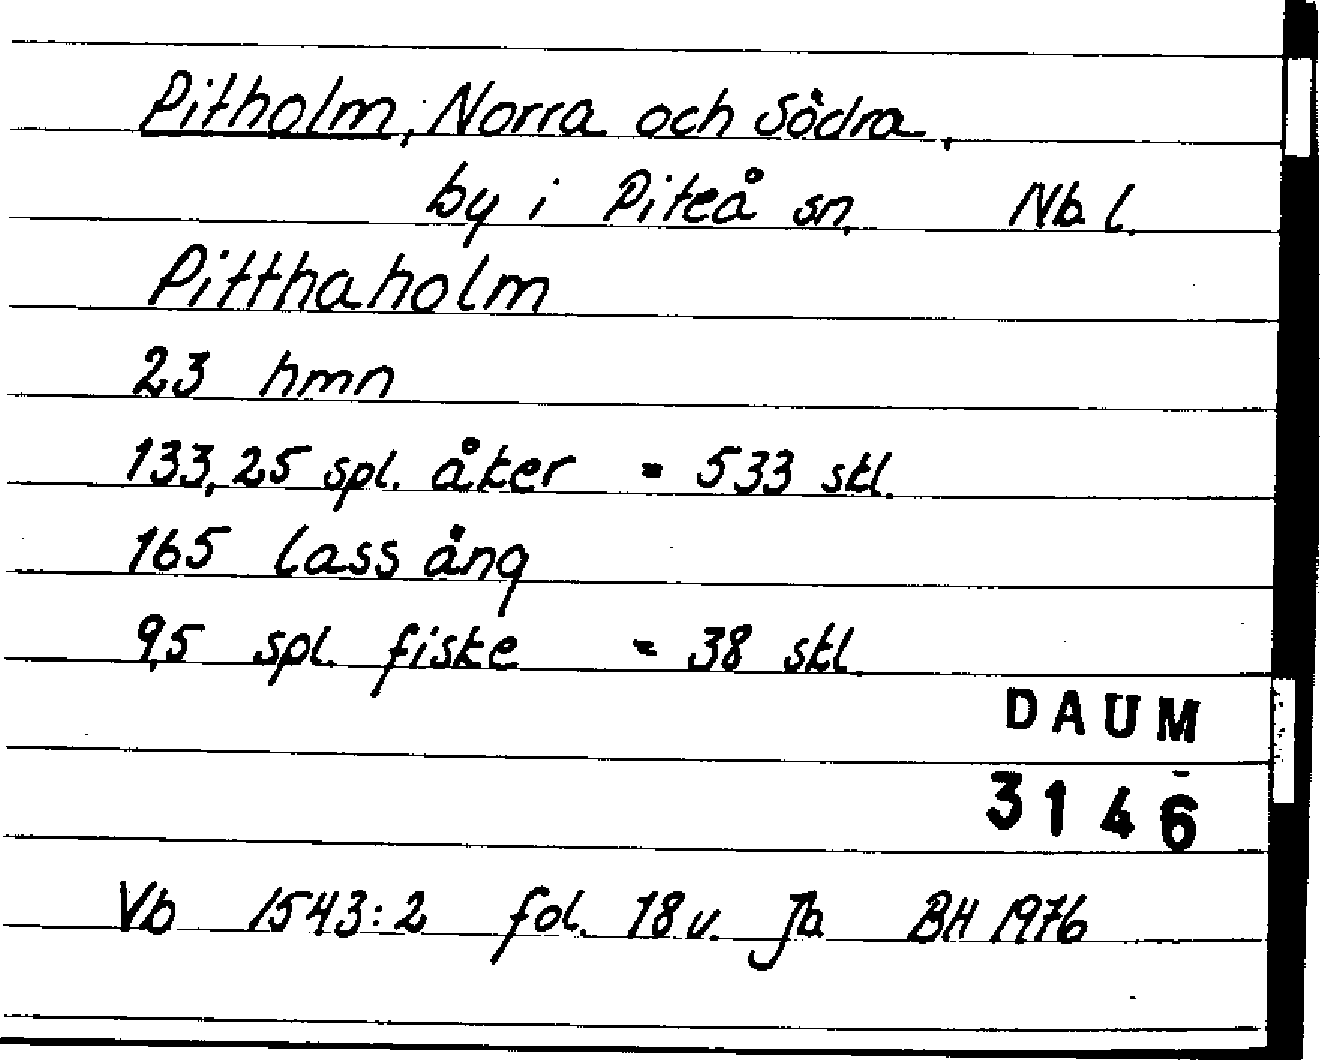 Pitholm, Norra och Södra,
by i Piteå sn. Nb. l.
Pitthaholm
23 hmn
133,25 spl. åker = 533 stl.
165 lass äng
9,5 spl. fiske = 38 stl.
DAUM
3146
Vb 1543:2 fol. 18 v. Jb BH 1976